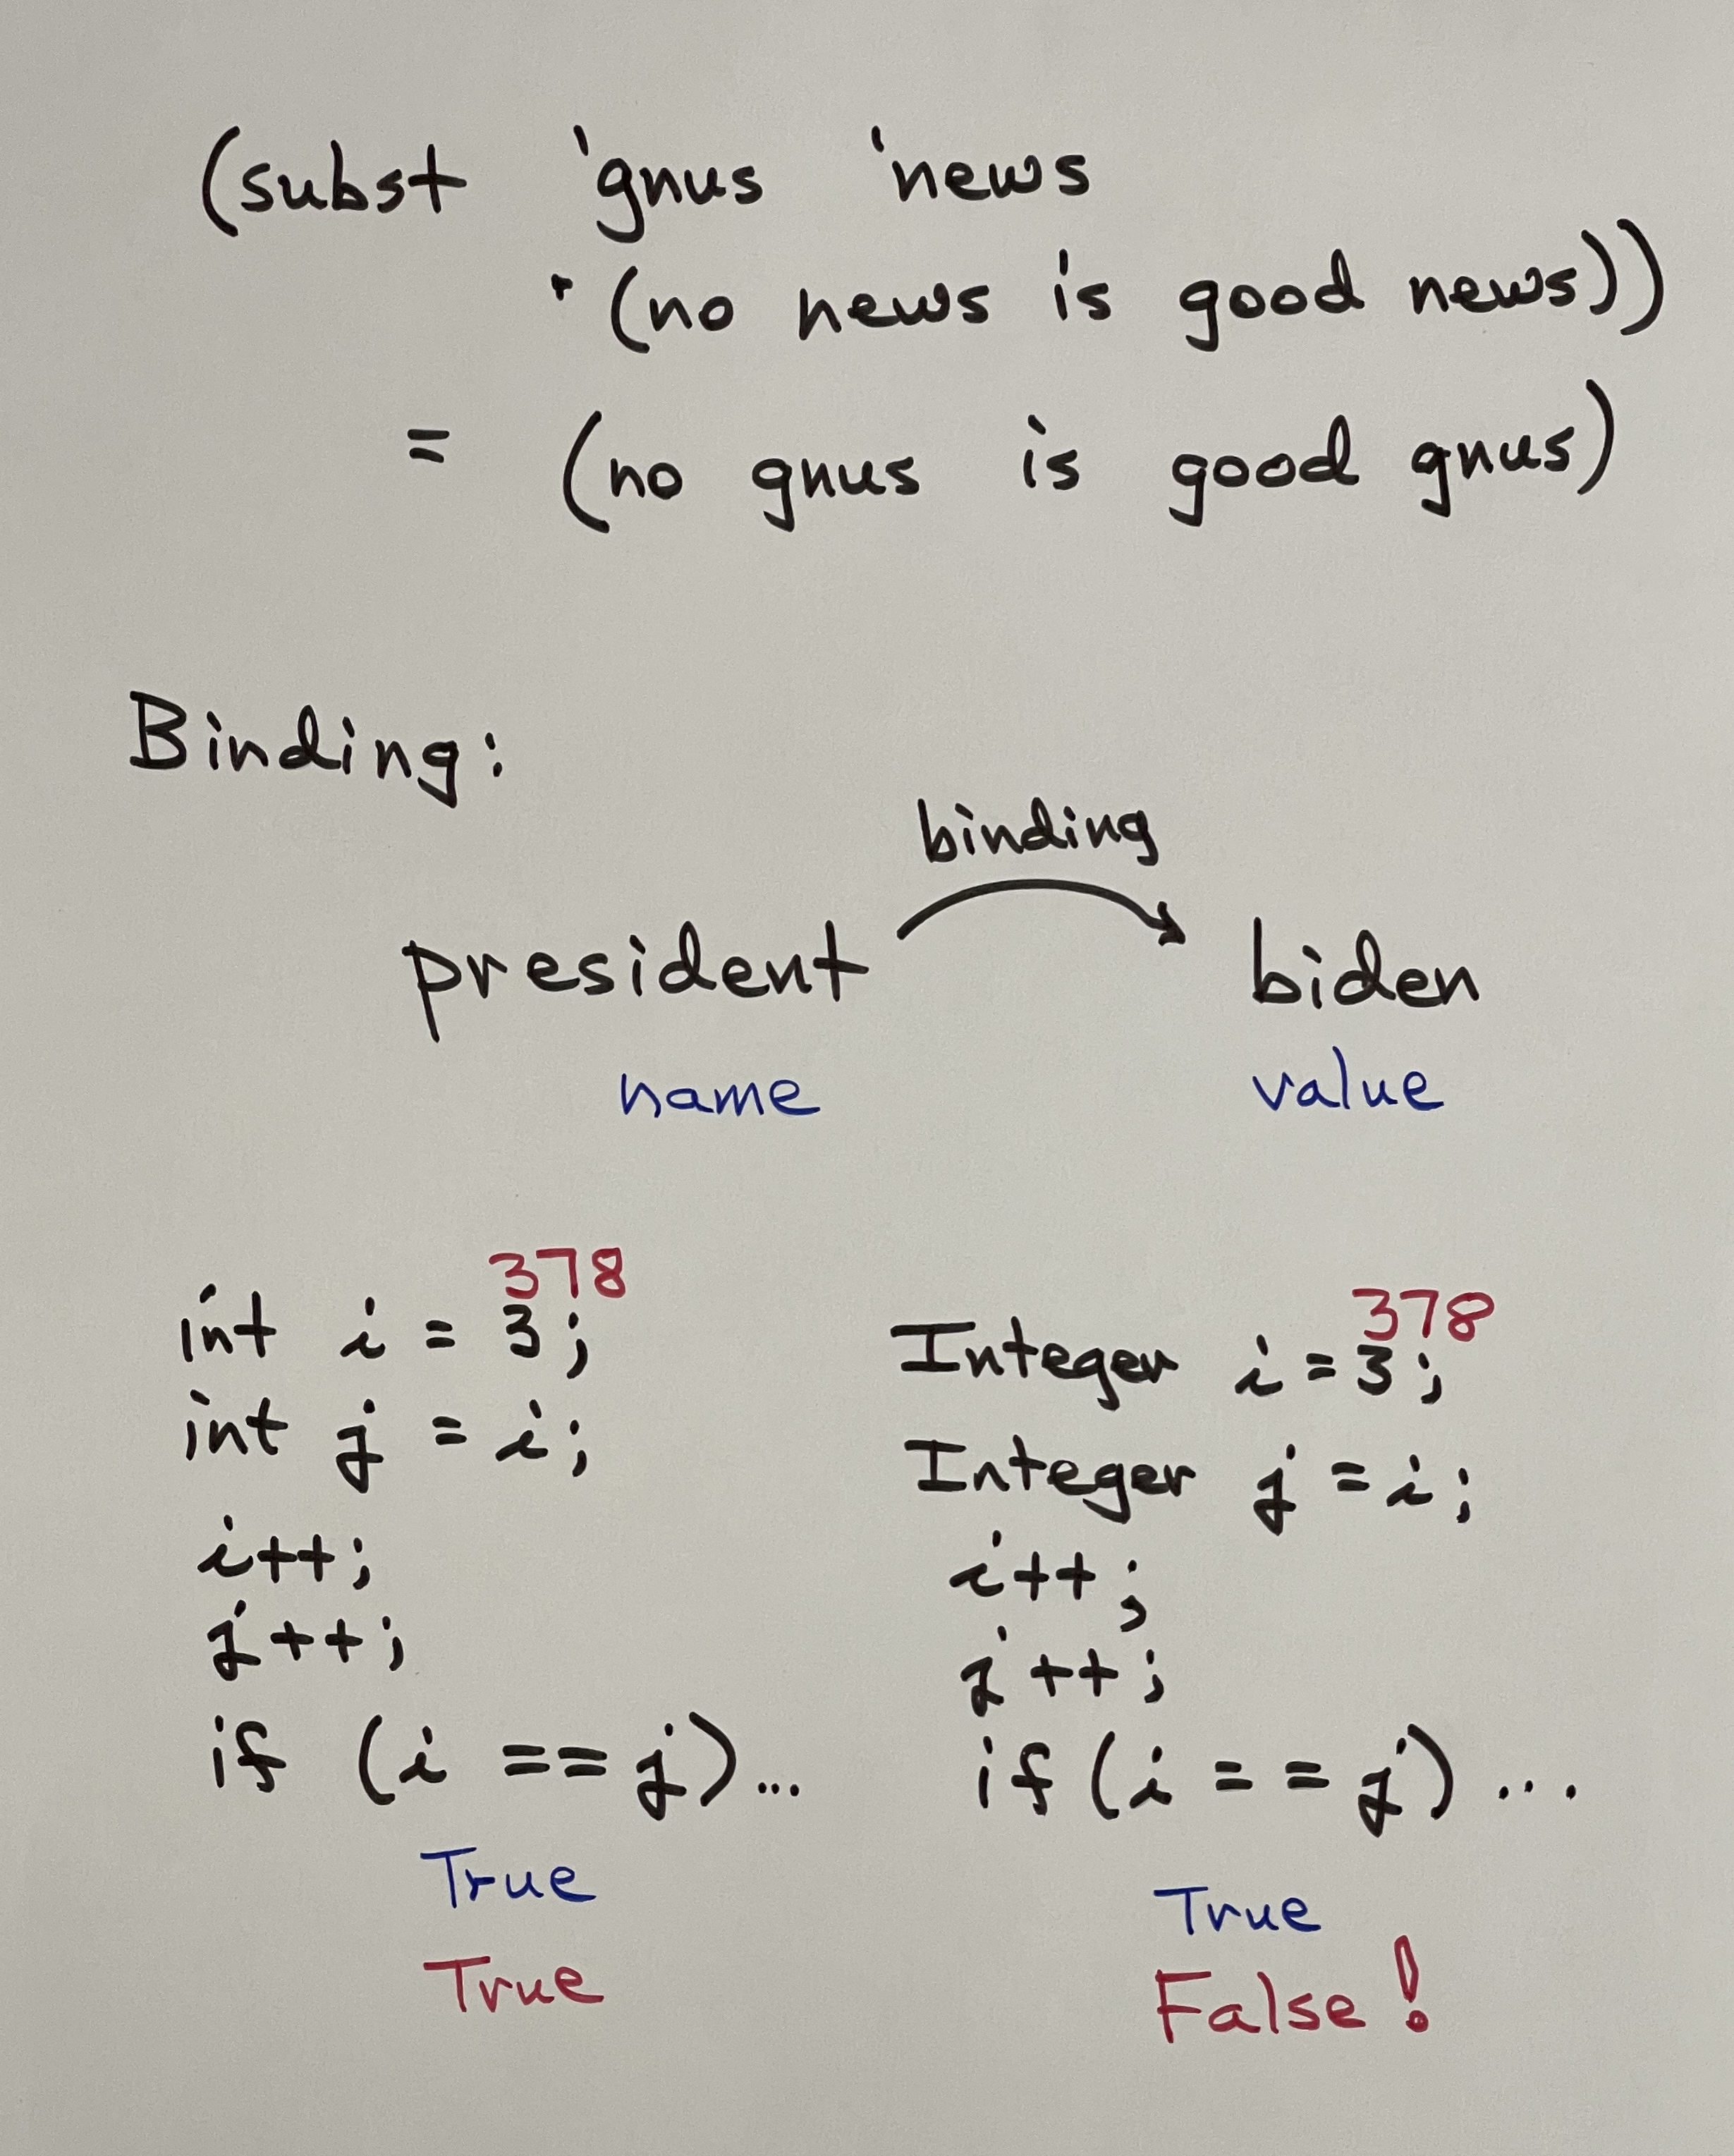 (subst 'gnus 'news
'(no news is good news))
= (no gnus is good gnus)
Binding:
binding
president biden
name value
378
int i = 3;
int j = i;
i++;
j++;
if (i == j)...
True
True
378
Integer i = 3;
Integer j = i;
i++;
j++;
if (i == j)...
True
False!